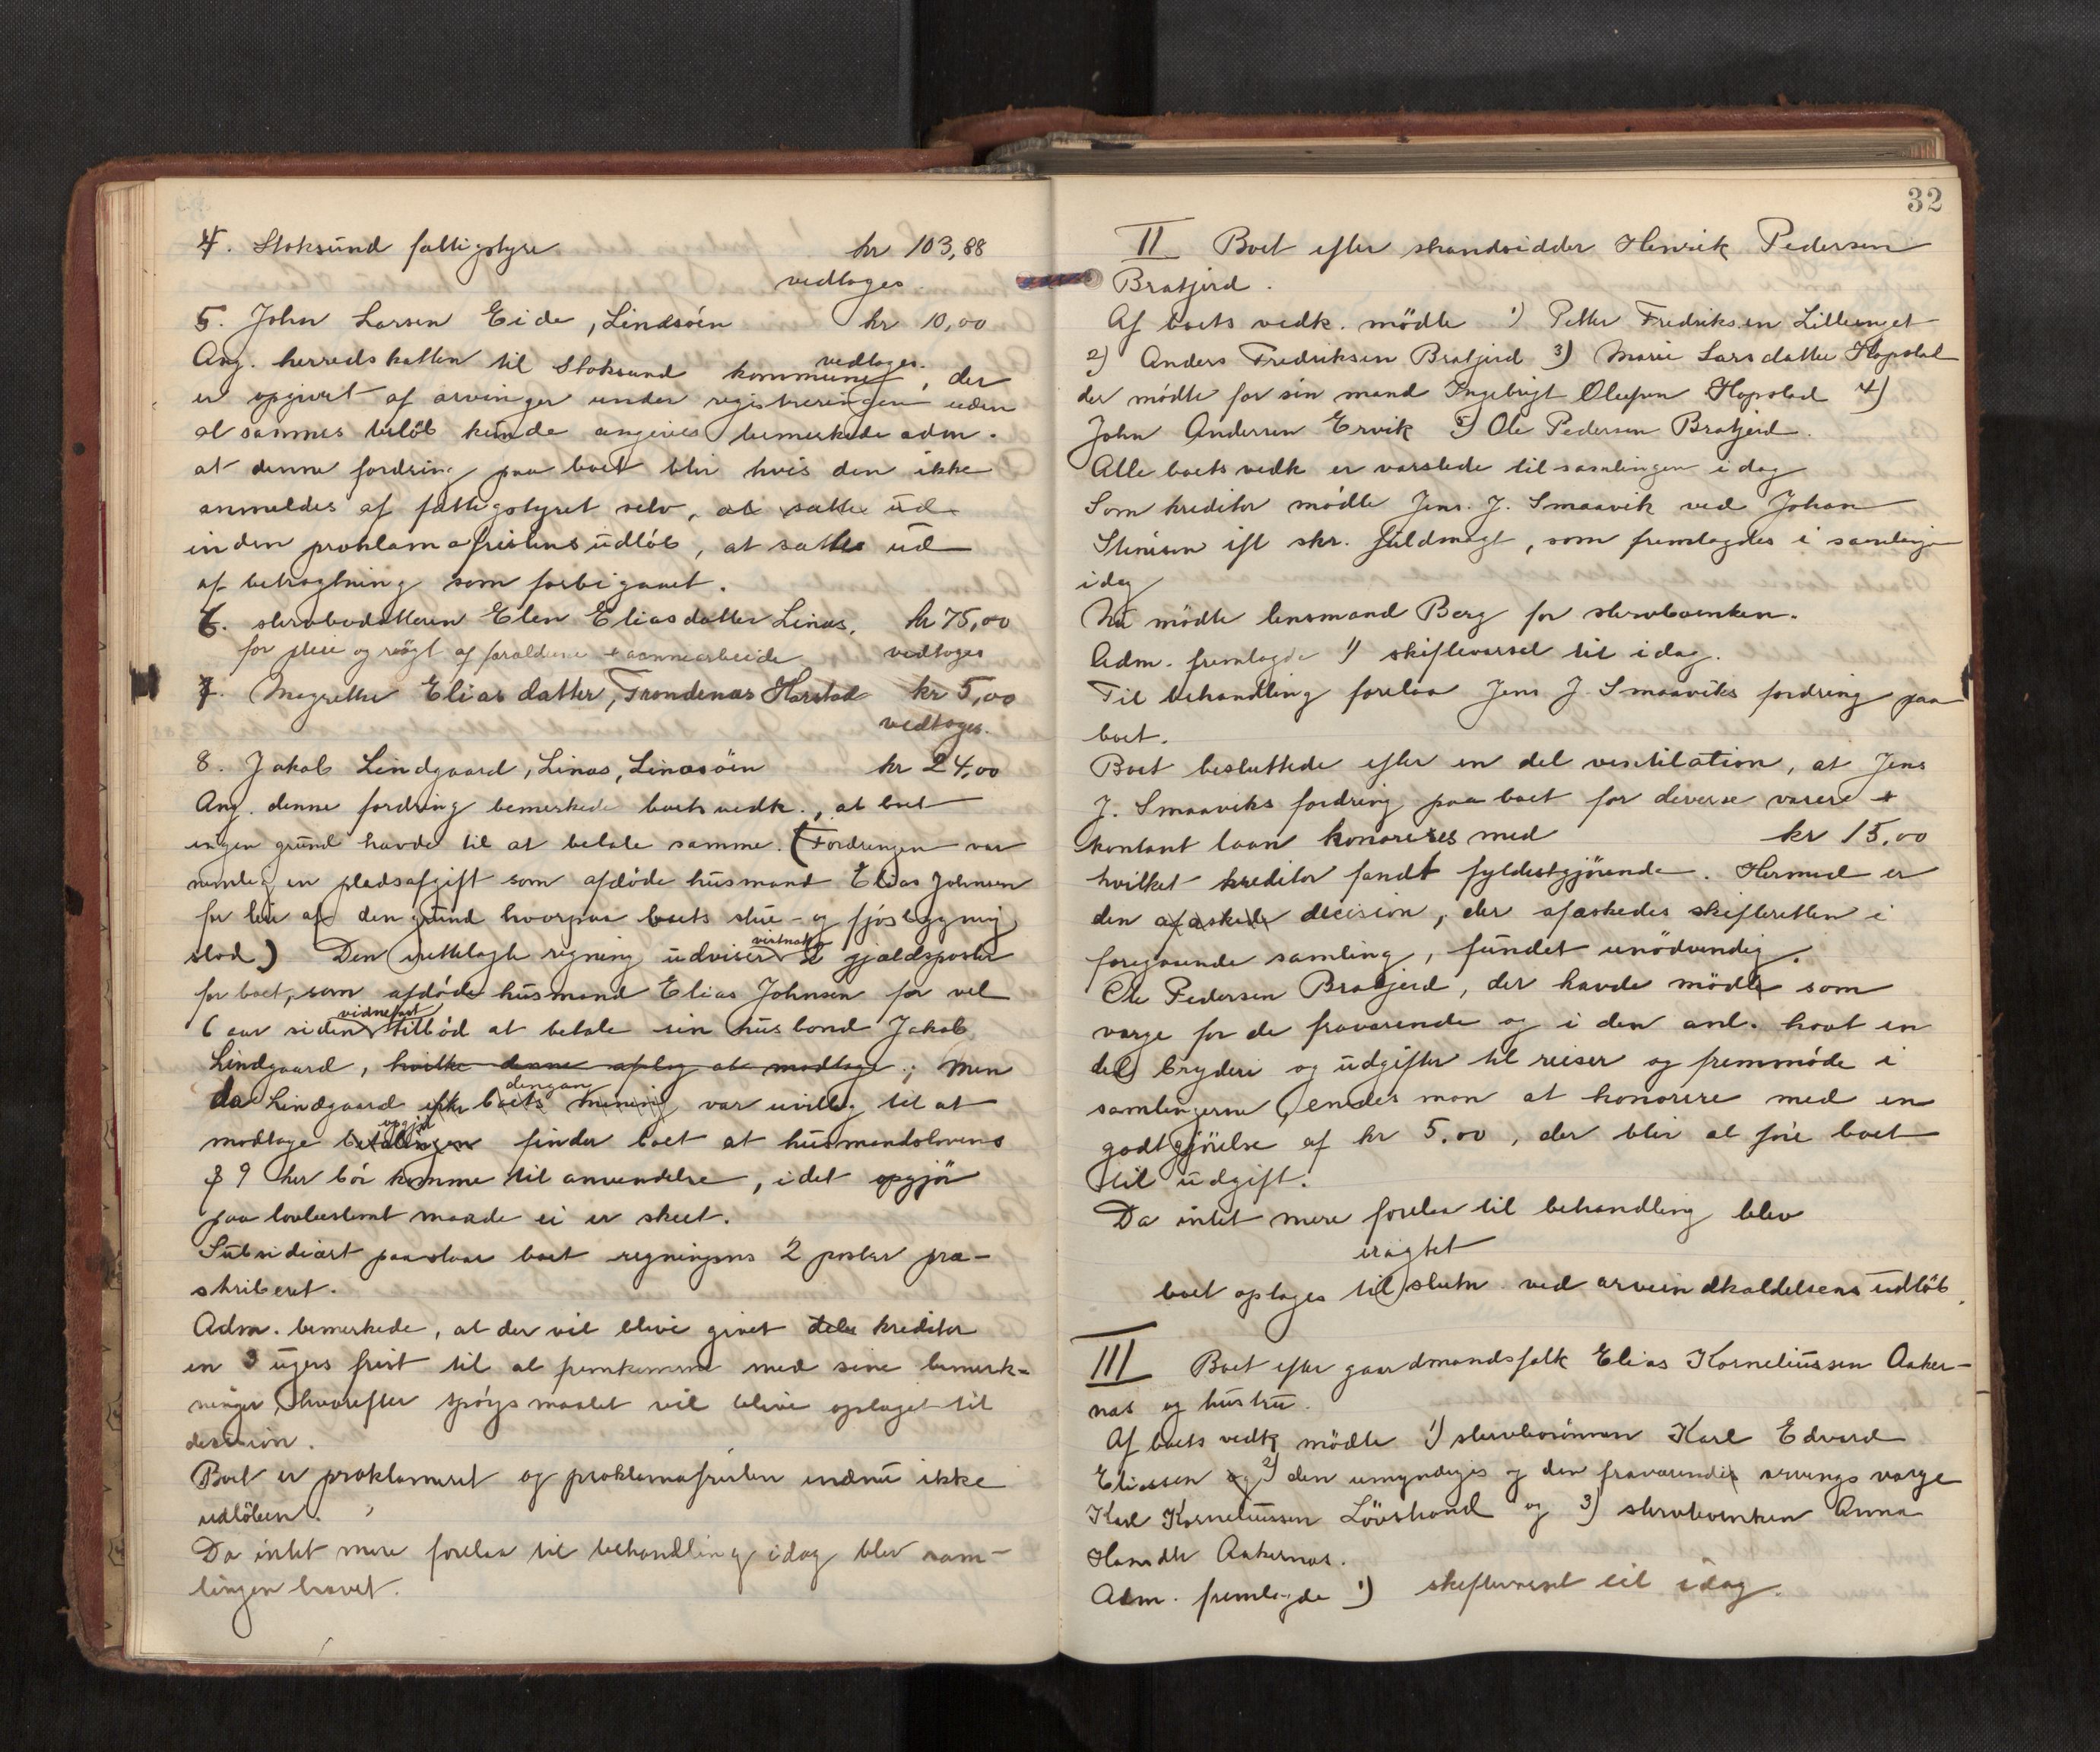 4. Stoksund fattigstyre kr 103,88
vedtages.
5. John Larsen Eide, Lindsöen kr 10,00
vedtages.
Ang. herredskatten til Stoksund kommune, der
er opgivet af arvinger under registreringen uden
at sammes belöb kunde angives bemerkede adm.
at denne fordring paa boet blir hvis den ikke
anmeldes af fattigstyret selv, at sætte ud
inden proklamafristens udlöb, at sættes ud
af betragtning som forbigaaet.
6. stervbodatteren Elen Eliasdatter Linæs, kr 75,00
for pleie og rögt af forældrene + aannearbeide vedtages
7. Magrethe Eliasdatter, Trondenæs Harstad kr 5,00
vedtages.
8. Jakob Lindgaard, Linæs, Linæsöen kr 24,00
Ang. denne fordring bemerkede boets vedk., at boet
ingen grund havde til at betale samme. (Fordringen var
nemlig en pladsafgift som afdöde husmand Elias Johnsen
for leie af den grund hvorpaa boets stue- og fjösbygning
stod) Den fremlagte regning udviser 2 gjældsposter
for boet, som afdöde husmand Elias Johnsen for vel
6 aar siden vidnefast tilböd at betale sin husbond Jakob
Lindgaard, hvilke denne afslog at modtage; Men
da Lindgaard efter boets mening dengang var uvillig til at
modtage betalingen opgjör finder boet at husmandslovens
§ 9 her bör komme til anvendelse, idet opgjör
paa lovbestemt maade ei er skeet.
Subsidiært paastaar boet regningens 2 poster præ-
skriberet.
Adm. bemerkede, at der vil blive givet kreditor
en 3 ugers frist til at fremkomme med sine bemerk-
ninger, hvorefter spörgsmaalet vil blive optaget til
decision.
Boet er proklameret og proklamafristen endnu ikke
udlöben.
Da intet mere forelaa til behandling idag blev sam-
lingen hævet.
32
II Boet efter strandsidder Henrik Pedersen
Bratjerd.
Af boets vedk. mödte 1) Petter Fredriksen Lilleenget
2) Anders Fredriksen Bratjerd 3) Marie Larsdatter Hopstad
der mödte for sin mand Ingebrigt Olufsen Hopstad 4)
John Andersen Ervik 5) Ole Pedersen Bratjerd.
Alle boets vedk er varslede til samlingen i dag
Som kreditor mödte Jens. J. Smaavik ved Johan
Stenisen ifl skr. fuldmagt, som fremlagdes i samlingen
idag
Nu mödte lensmand Berg for stervboenken.
Adm. fremlagde 1) skiftevarsel til idag.
Til behandling forelaa Jens J. Smaaviks fordring paa
boet.
Boet besluttede efter en del ventilation, at Jens
J. Smaaviks fordring paa boet for diverse varer +
kontant laan honoreres med kr 15,00
hvilket kreditor fandt fyldestgjörende. Hermed er
den afæskede decision, der afæskedes skifteretten i
foregaaende samling, fundet unödvendig.
Ole Pedersen Bratjerd, der havde mödt som
værge for de fraværende og i den anl. havt en
del bryderi og udgifter til reiser og fremmöde i
samlingerne, enedes man at honorere med en
godtgjörelse af kr 5.00, der blir at före boet
til udgift.
Da intet mere forelaa til behandling blev
eragtet
boet optages til slutn. ved arveindkaldelsens udlöb.
III Boet efter gaardmandsfolk Elias Korneliussen Aaker-
næs og hustru.
Af boets vedk mödte 1) stervbosönnen Karl Edvard
Eliassen og 2) den umyndiges og den fraværendes arvings værge
Karl Korneliussen Lövstrand og 3) stervboenken Anna
Hansdtr Aakernæs.
Adm. fremlagde 1) skiftevarsel til idag.